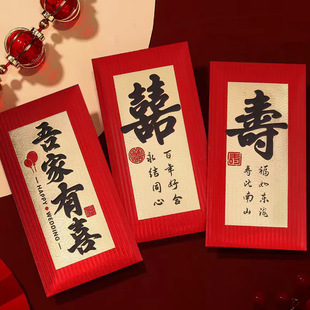 吾家有喜
HAPPY WEDDING
囍
百年好合
永结同心
寿
福如东海
寿比南山